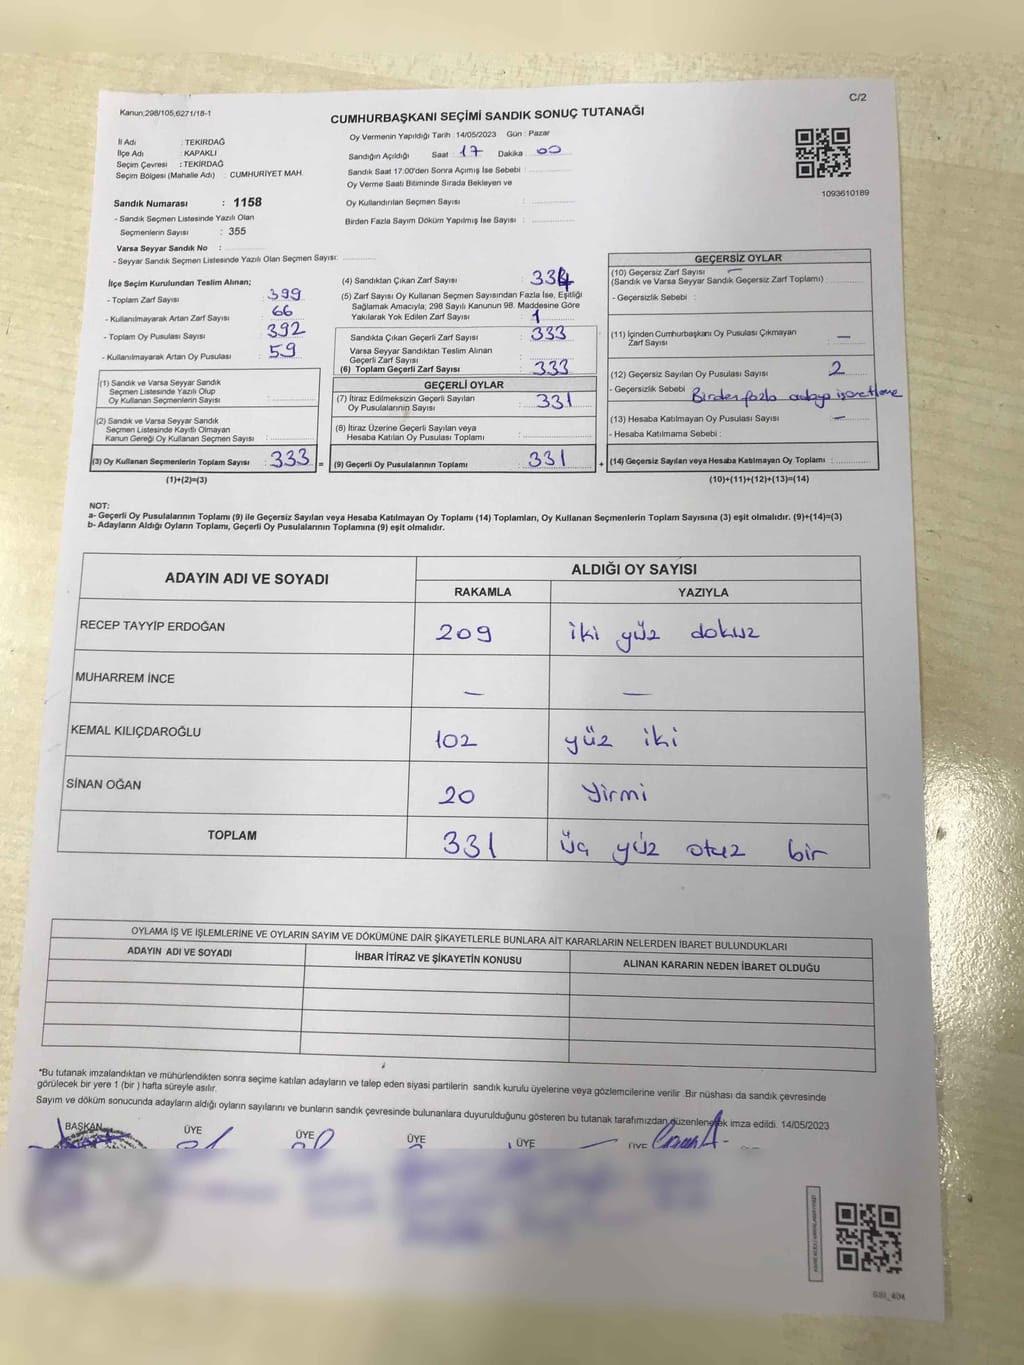 C/2
Kanun:298/105,6271/18-1
CUMHURBAŞKANI SEÇİMİ SANDIK SONUÇ TUTANAĞI
İl Adı : TEKİRDAĞ
İlçe Adı : KAPAKLI
Seçim Çevresi : TEKİRDAĞ
Seçim Bölgesi (Mahalle Adı) : CUMHURİYET MAH.
Oy Vermenin Yapıldığı Tarih : 14/05/2023 Gün : Pazar
Sandığın Açıldığı Saat 17 Dakika 00
Sandık Saat 17:00'den Sonra Açımış İse Sebebi :
Oy Verme Saati Bitiminde Sırada Bekleyen ve
Oy Kullandırılan Seçmen Sayısı :
Birden Fazla Sayım Döküm Yapılmış İse Sayısı :
1093610189
Sandık Numarası : 1158
- Sandık Seçmen Listesinde Yazılı Olan
Seçmenlerin Sayısı : 355
Varsa Seyyar Sandık No :
- Seyyar Sandık Seçmen Listesinde Yazılı Olan Seçmen Sayısı:
İlçe Seçim Kurulundan Teslim Alınan;
- Toplam Zarf Sayısı : 399
- Kullanılmayarak Artan Zarf Sayısı : 66
- Toplam Oy Pusulası Sayısı : 392
- Kullanılmayarak Artan Oy Pusulası : 59
(1) Sandık ve Varsa Seyyar Sandık
Seçmen Listesinde Yazılı Olup
Oy Kullanan Seçmenlerin Sayısı
(2) Sandık ve Varsa Seyyar Sandık
Seçmen Listesinde Kayıtlı Olmayan
Kanun Gereği Oy Kullanan Seçmen Sayısı :
(3) Oy Kullanan Seçmenlerin Toplam Sayısı : 333 =
(1)+(2)=(3)
(4) Sandıktan Çıkan Zarf Sayısı : 334
(5) Zarf Sayısı Oy Kullanan Seçmen Sayısından Fazla İse, Eşitliği
Sağlamak Amacıyla, 298 Sayılı Kanunun 98. Maddesine Göre
Yakılarak Yok Edilen Zarf Sayısı : 1
Sandıkta Çıkan Geçerli Zarf Sayısı : 333
Varsa Seyyar Sandıktan Teslim Alınan
Geçerli Zarf Sayısı :
(6) Toplam Geçerli Zarf Sayısı : 333
GEÇERLİ OYLAR
(7) İtiraz Edilmeksizin Geçerli Sayılan
Oy Pusulalarının Sayısı : 331
(8) İtiraz Üzerine Geçerli Sayılan veya
Hesaba Katılan Oy Pusulası Toplamı :
(9) Geçerli Oy Pusulalarının Toplamı : 331 +
GEÇERSİZ OYLAR
(10) Geçersiz Zarf Sayısı —
(Sandık ve Varsa Seyyar Sandık Geçersiz Zarf Toplamı) :
- Geçersizlik Sebebi :
(11) İçinden Cumhurbaşkanı Oy Pusulası Çıkmayan
Zarf Sayısı : —
(12) Geçersiz Sayılan Oy Pusulası Sayısı : 2
- Geçersizlik Sebebi : Birden fazla adaya işaretleme
(13) Hesaba Katılmayan Oy Pusulası Sayısı : —
- Hesaba Katılmama Sebebi :
(14) Geçersiz Sayılan veya Hesaba Katılmayan Oy Toplamı :
(10)+(11)+(12)+(13)=(14)
NOT:
a- Geçerli Oy Pusulalarının Toplamı (9) ile Geçersiz Sayılan veya Hesaba Katılmayan Oy Toplamı (14) Toplamları, Oy Kullanan Seçmenlerin Toplam Sayısına (3) eşit olmalıdır. (9)+(14)=(3)
b- Adayların Aldığı Oyların Toplamı, Geçerli Oy Pusulalarının Toplamına (9) eşit olmalıdır.
ADAYIN ADI VE SOYADI
ALDIĞI OY SAYISI
RAKAMLA YAZIYLA
RECEP TAYYİP ERDOĞAN 209 iki yüz dokuz
MUHARREM İNCE — —
KEMAL KILIÇDAROĞLU 102 yüz iki
SİNAN OĞAN 20 Yirmi
TOPLAM 331 üç yüz otuz bir
OYLAMA İŞ VE İŞLEMLERİNE VE OYLARIN SAYIM VE DÖKÜMÜNE DAİR ŞİKAYETLERLE BUNLARA AİT KARARLARIN NELERDEN İBARET BULUNDUKLARI
ADAYIN ADI VE SOYADI İHBAR İTİRAZ VE ŞİKAYETİN KONUSU ALINAN KARARIN NEDEN İBARET OLDUĞU
*Bu tutanak imzalandıktan ve mühürlendikten sonra seçime katılan adayların ve talep eden siyasi partilerin sandık kurulu üyelerine veya gözlemcilerine verilir. Bir nüshası da sandık çevresinde
görülecek bir yere 1 (bir ) hafta süreyle asılır.
Sayım ve döküm sonucunda adayların aldığı oyların sayılarını ve bunların sandık çevresinde bulunanlara duyurulduğunu gösteren bu tutanak tarafımızdan düzenlenerek imza edildi. 14/05/2023
BAŞKAN ÜYE ÜYE ÜYE ÜYE ÜYE